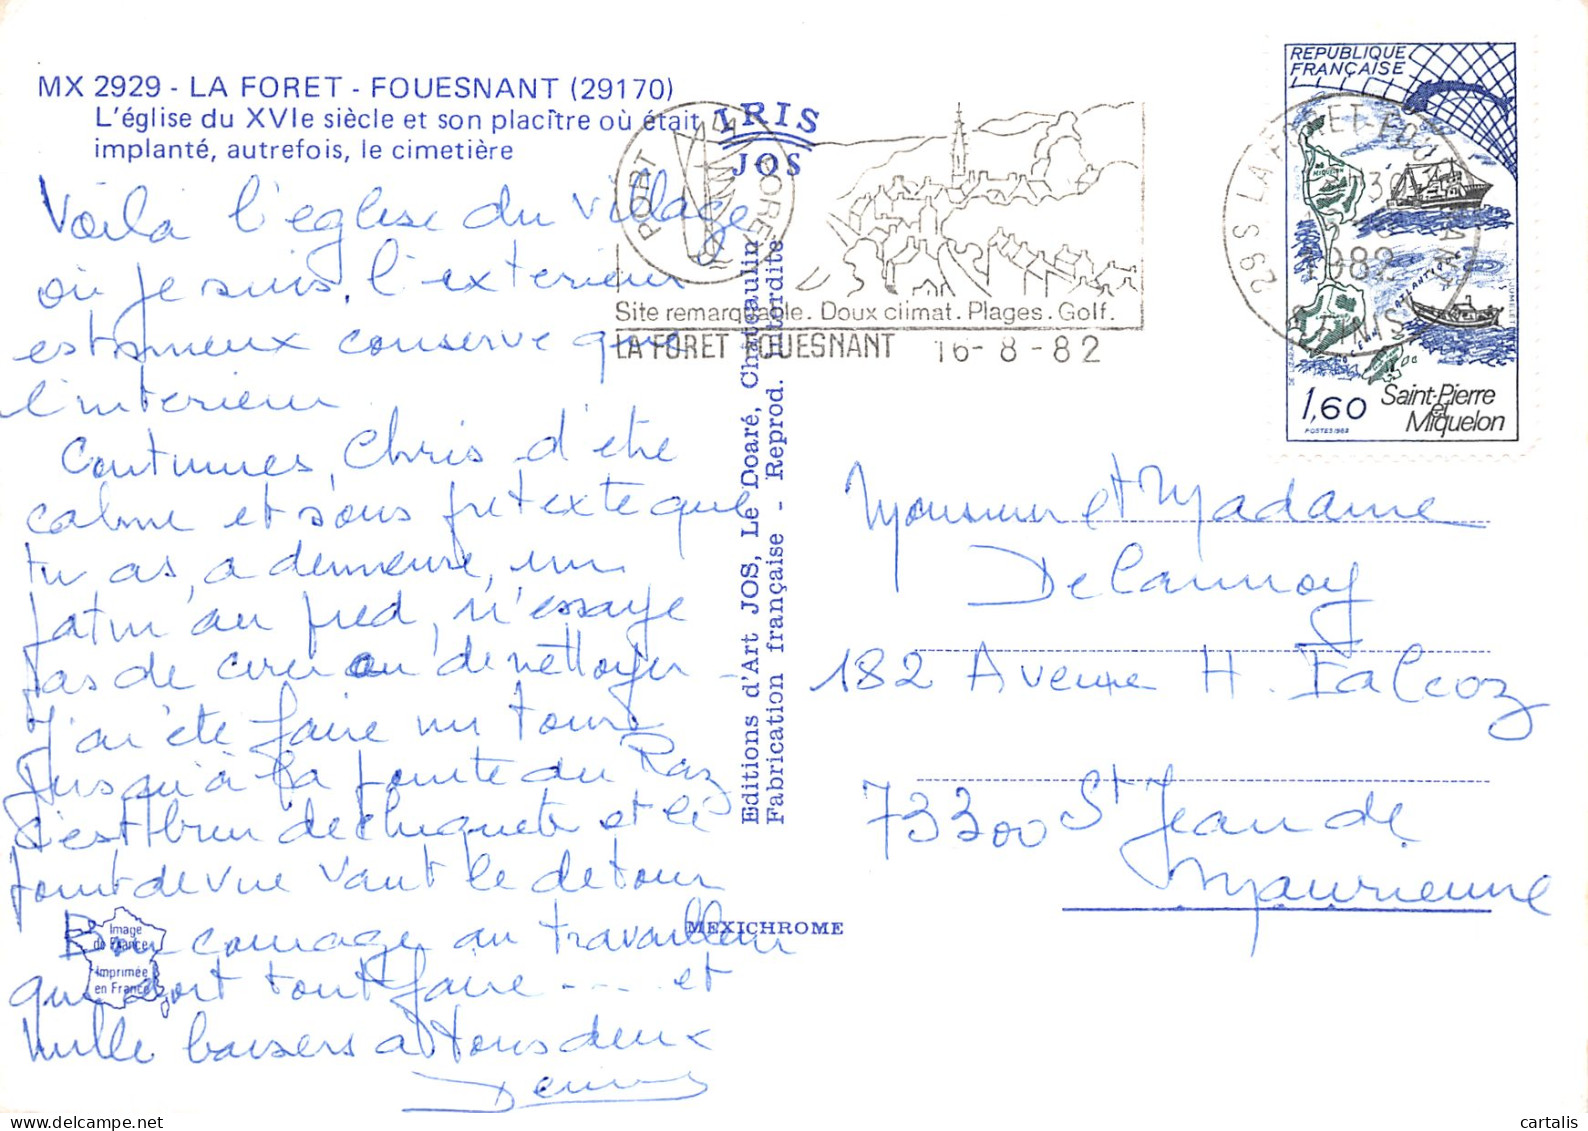 MX 2929 - LA FORET - FOUESNANT (29170)
L'église du XVIe siècle et son placître où était
implanté, autrefois, le cimetière
Voilà l'eglise du village
où je suis, l'exterieur
est mieux conserve que
l'interieur
Continues, Chris d'etre
calme et sous pretexte que
tu as, a demeure, un
patin au pied, n'essaye
pas de cirer ou de nettoyer
J'ai été faire un tour
jusqu'à la pointe du Raz
c'est bien dechiqueté et le
point de vue vaut le detour
Bon courage au travailleur
qui doit tout faire ---- et
mille baisers a tous deux
IRIS
JOS
Editions d'Art JOS, Le Doaré, Chateaulin
Fabrication française - Reprod. interdite
MEXICHROME
Image
de France
Imprimée
en France
PORT
LA FORET
Site remarquable. Doux climat. Plages. Golf.
LA FORET FOUESNANT 16-8-82
REPUBLIQUE
FRANÇAISE
29 S LA FORET-FOUESNANT
1982
FINISTERE
MIQUELON
OCEAN ATLANTIQUE
1,60
POSTES 1982
Saint-Pierre
et
Miquelon
Monsieur et Madame
Delannoy
182 Avenue H. Falcoz
73300 St Jean de
Maurienne
cartalis
www.delcampe.net